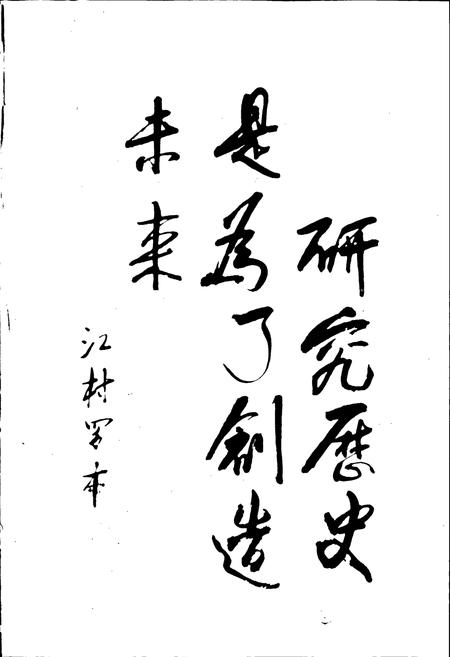 研究歷史
是為了創造
未来
江村罗布